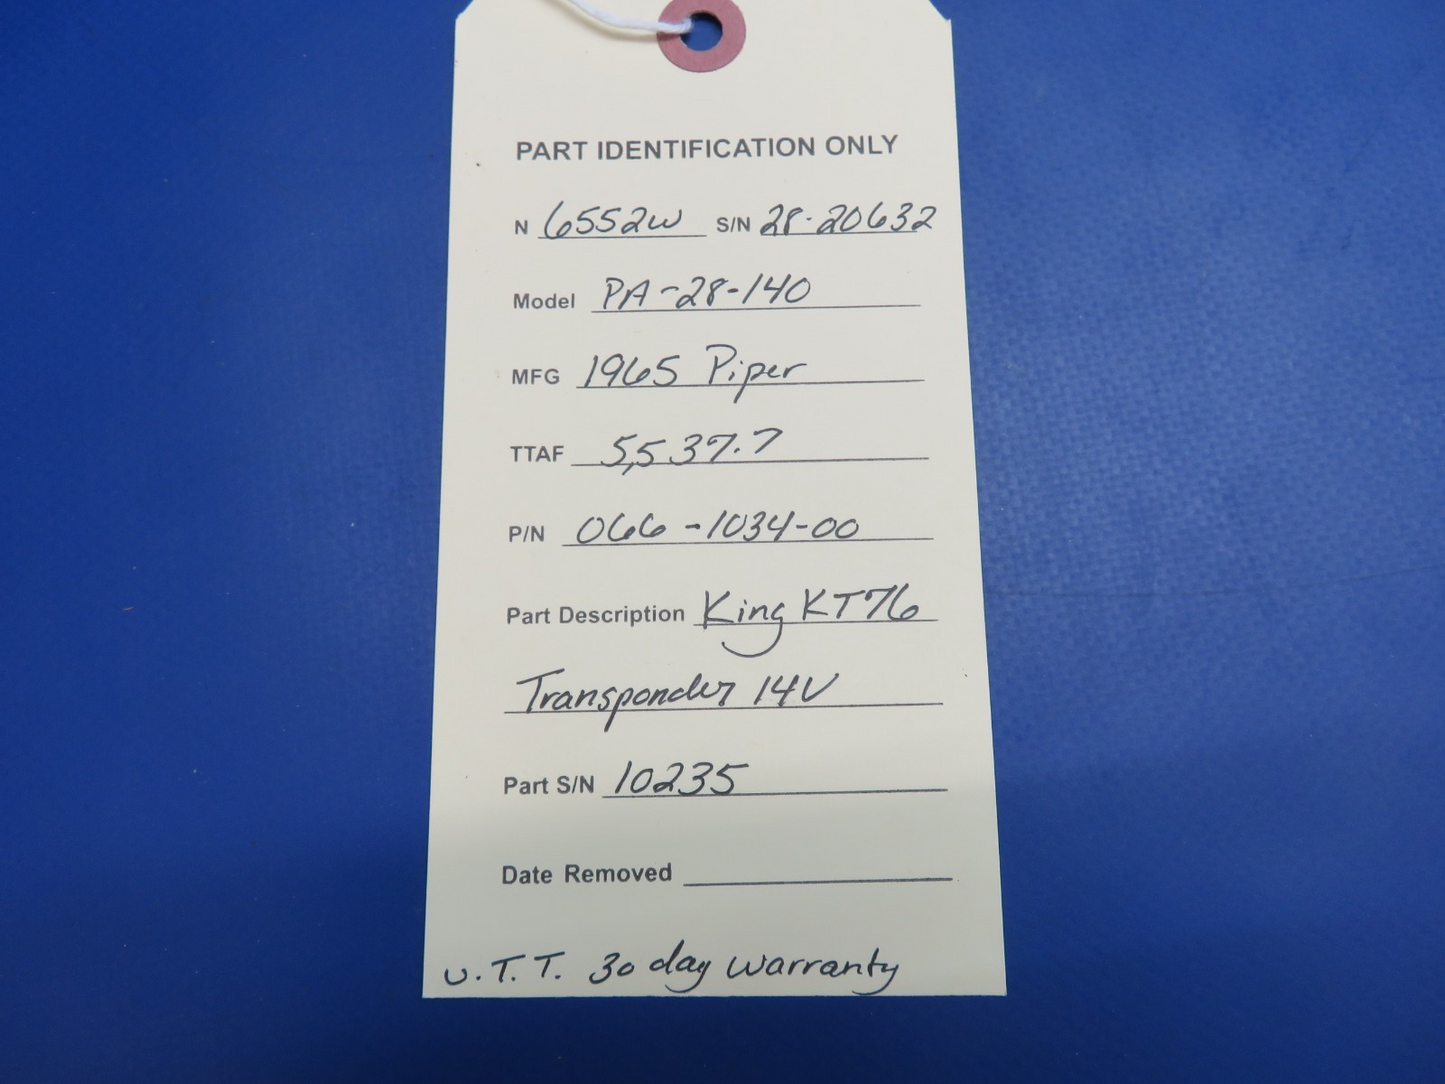 PART IDENTIFICATION ONLY
N 6552W S/N 28-20632
Model PA-28-140
MFG 1965 Piper
TTAF 5,537.7
P/N 066-1034-00
Part Description King KT76
Transponder 14V
Part S/N 10235
Date Removed
U.T.T. 30 day warranty